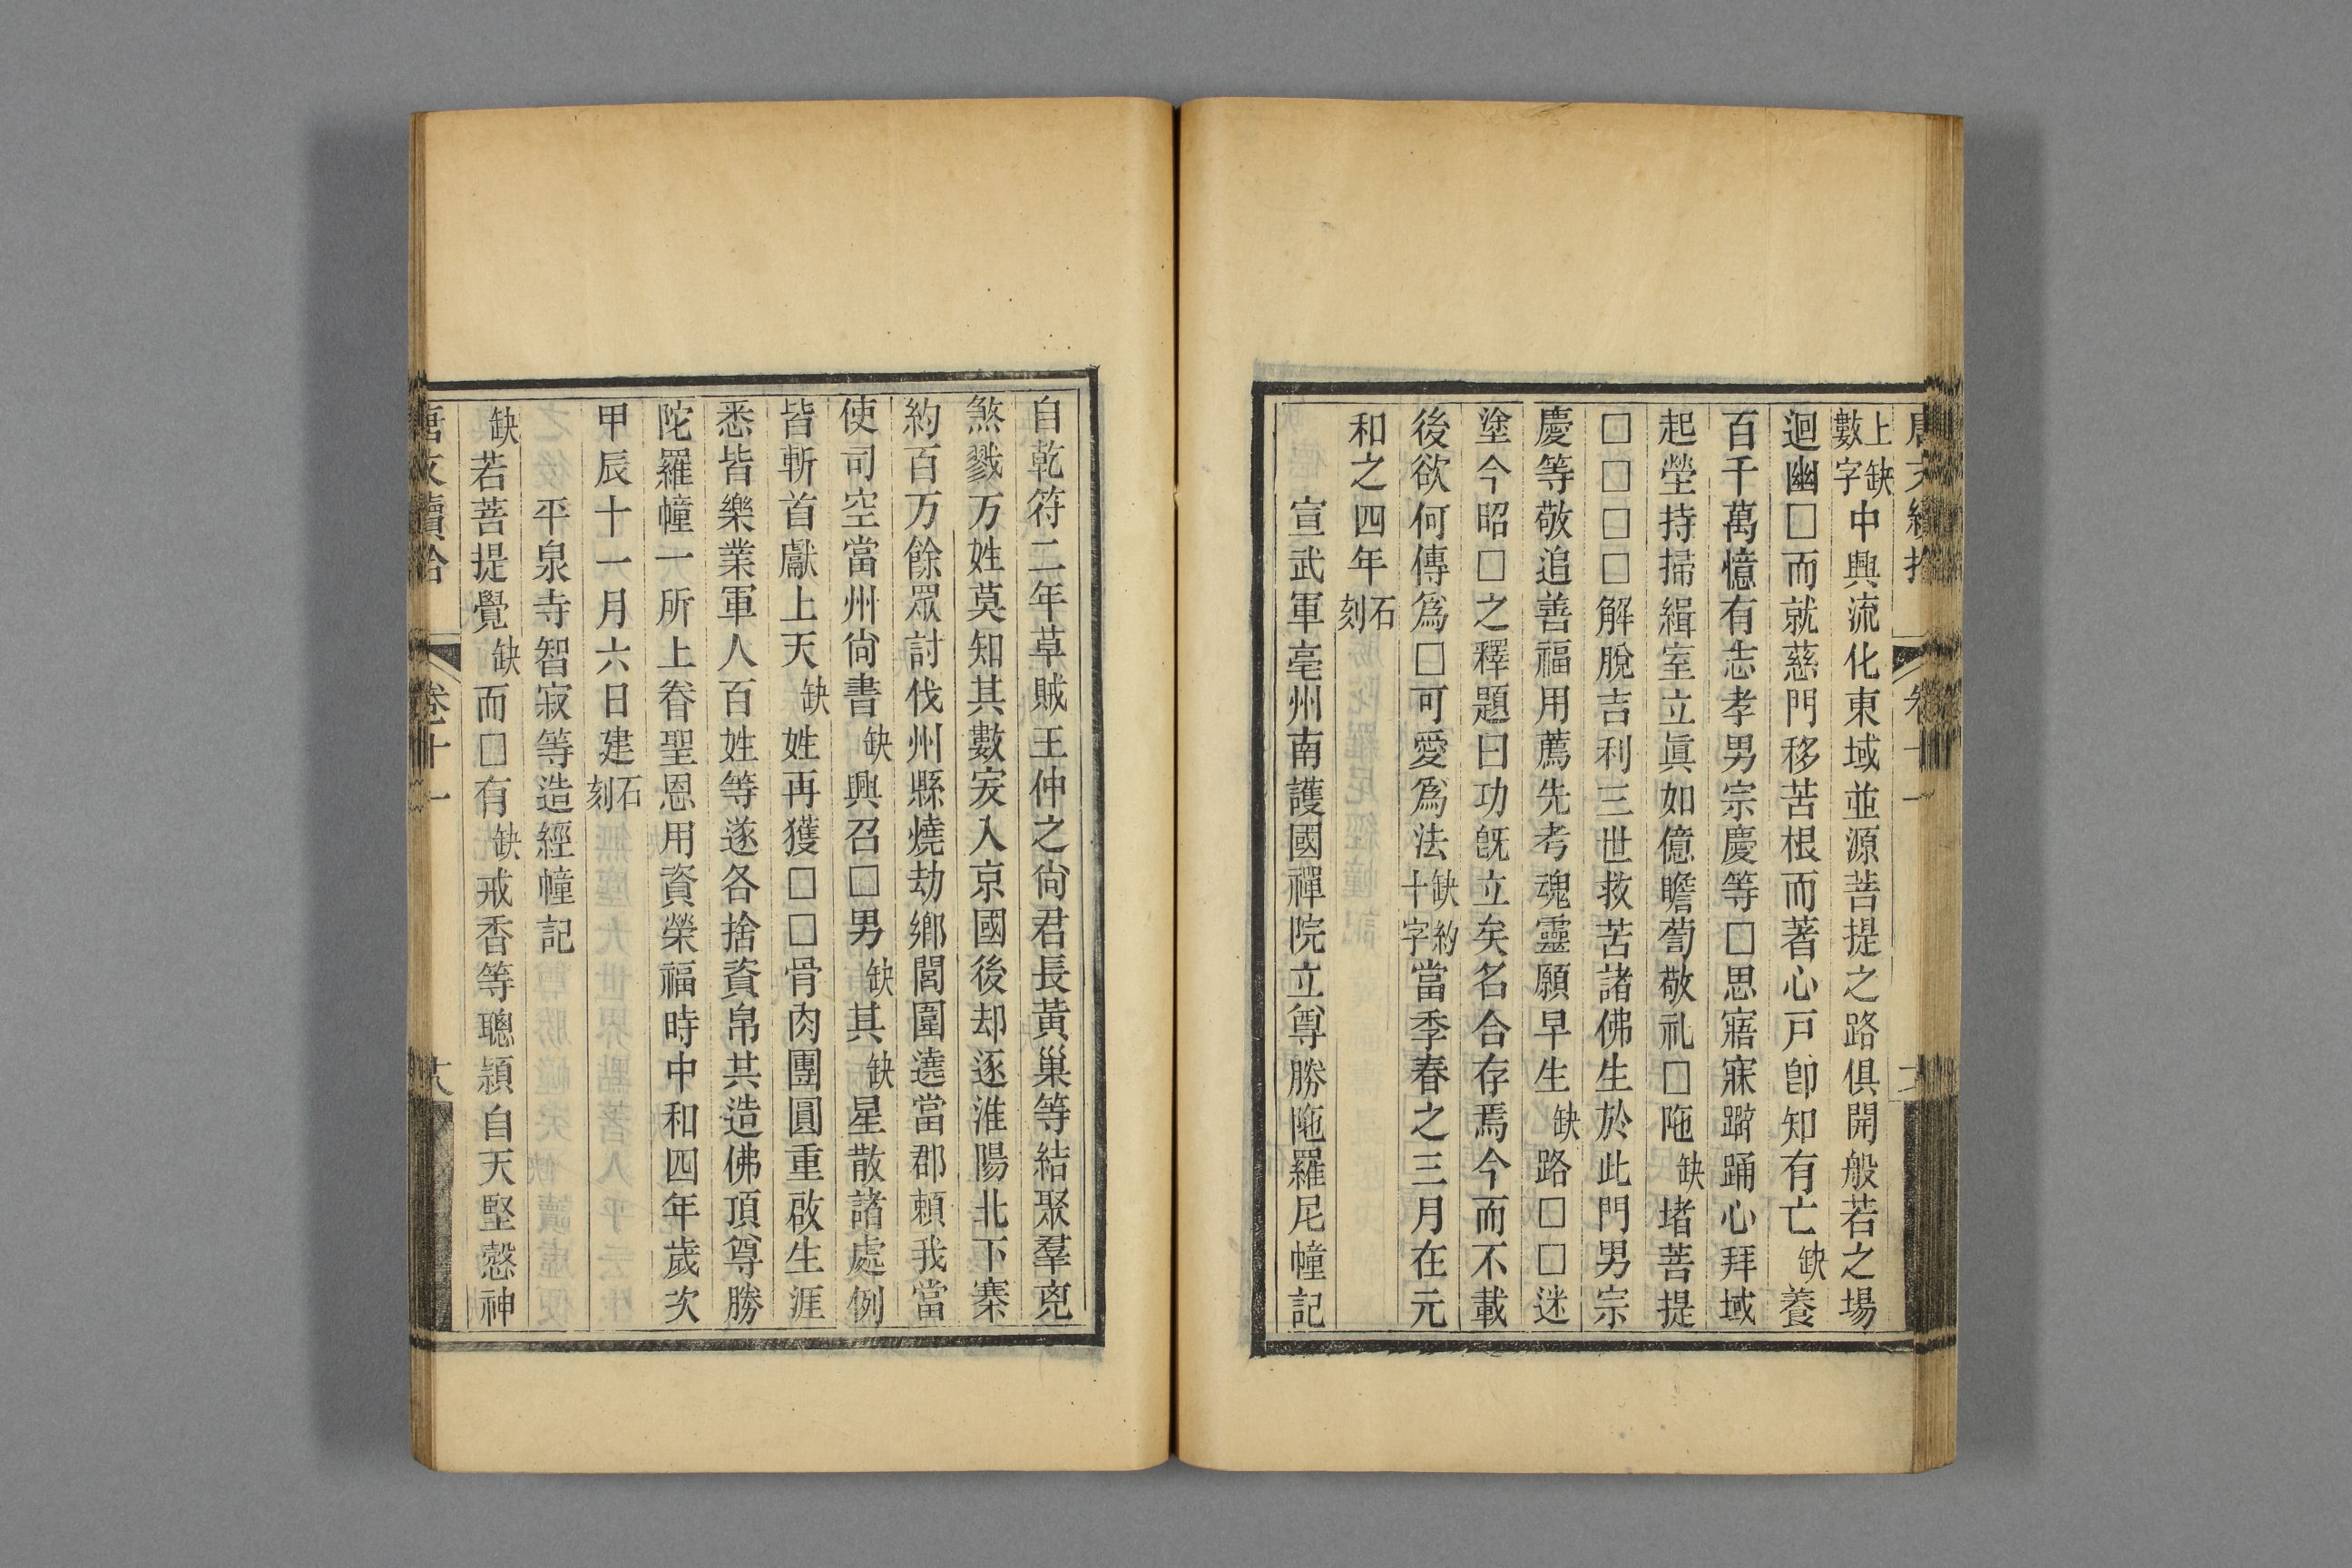 上缺數字中興流化東域並源菩提之路俱開般若之場
迴幽□而就慈門移苦根而著心戸卽知有亡缺養
百千萬憶有志孝男宗慶等□思寤寐躃踊心拜域
起塋持掃緝室立眞如億瞻蔔敬礼□陁缺堵菩提
□□□□解脫吉利三世救苦諸佛生於此門男宗
慶等敬追善福用薦先考魂靈願早生缺路□□迷
塗今昭□之釋題曰功旣立矣名合存焉今而不載
後欲何傳爲□可愛爲法缺約十字當季春之三月在元
和之四年石刻
宣武軍亳州南護國禪院立尊勝陁羅尼幢記
自乾符二年草賊王仲之尙君長黃巢等結聚羣兇
煞戮万姓莫知其數叐入京國後却逐淮陽北下寨
約百万餘眾討伐州縣燒劫鄉閭圍遶當郡賴我當
使司空當州尙書缺興召□男缺其缺星散諸處例
皆斬首獻上天缺姓再獲□□骨肉團圓重啟生涯
悉皆樂業軍人百姓等遂各捨資帛共造佛頂尊勝
陀羅幢一所上眷聖恩用資榮福時中和四年歲次
甲辰十一月六日建石刻
平泉寺智寂等造經幢記
缺若菩提覺缺而□有缺戒香等聰穎自天堅慤神
唐文續拾 卷十一 十八